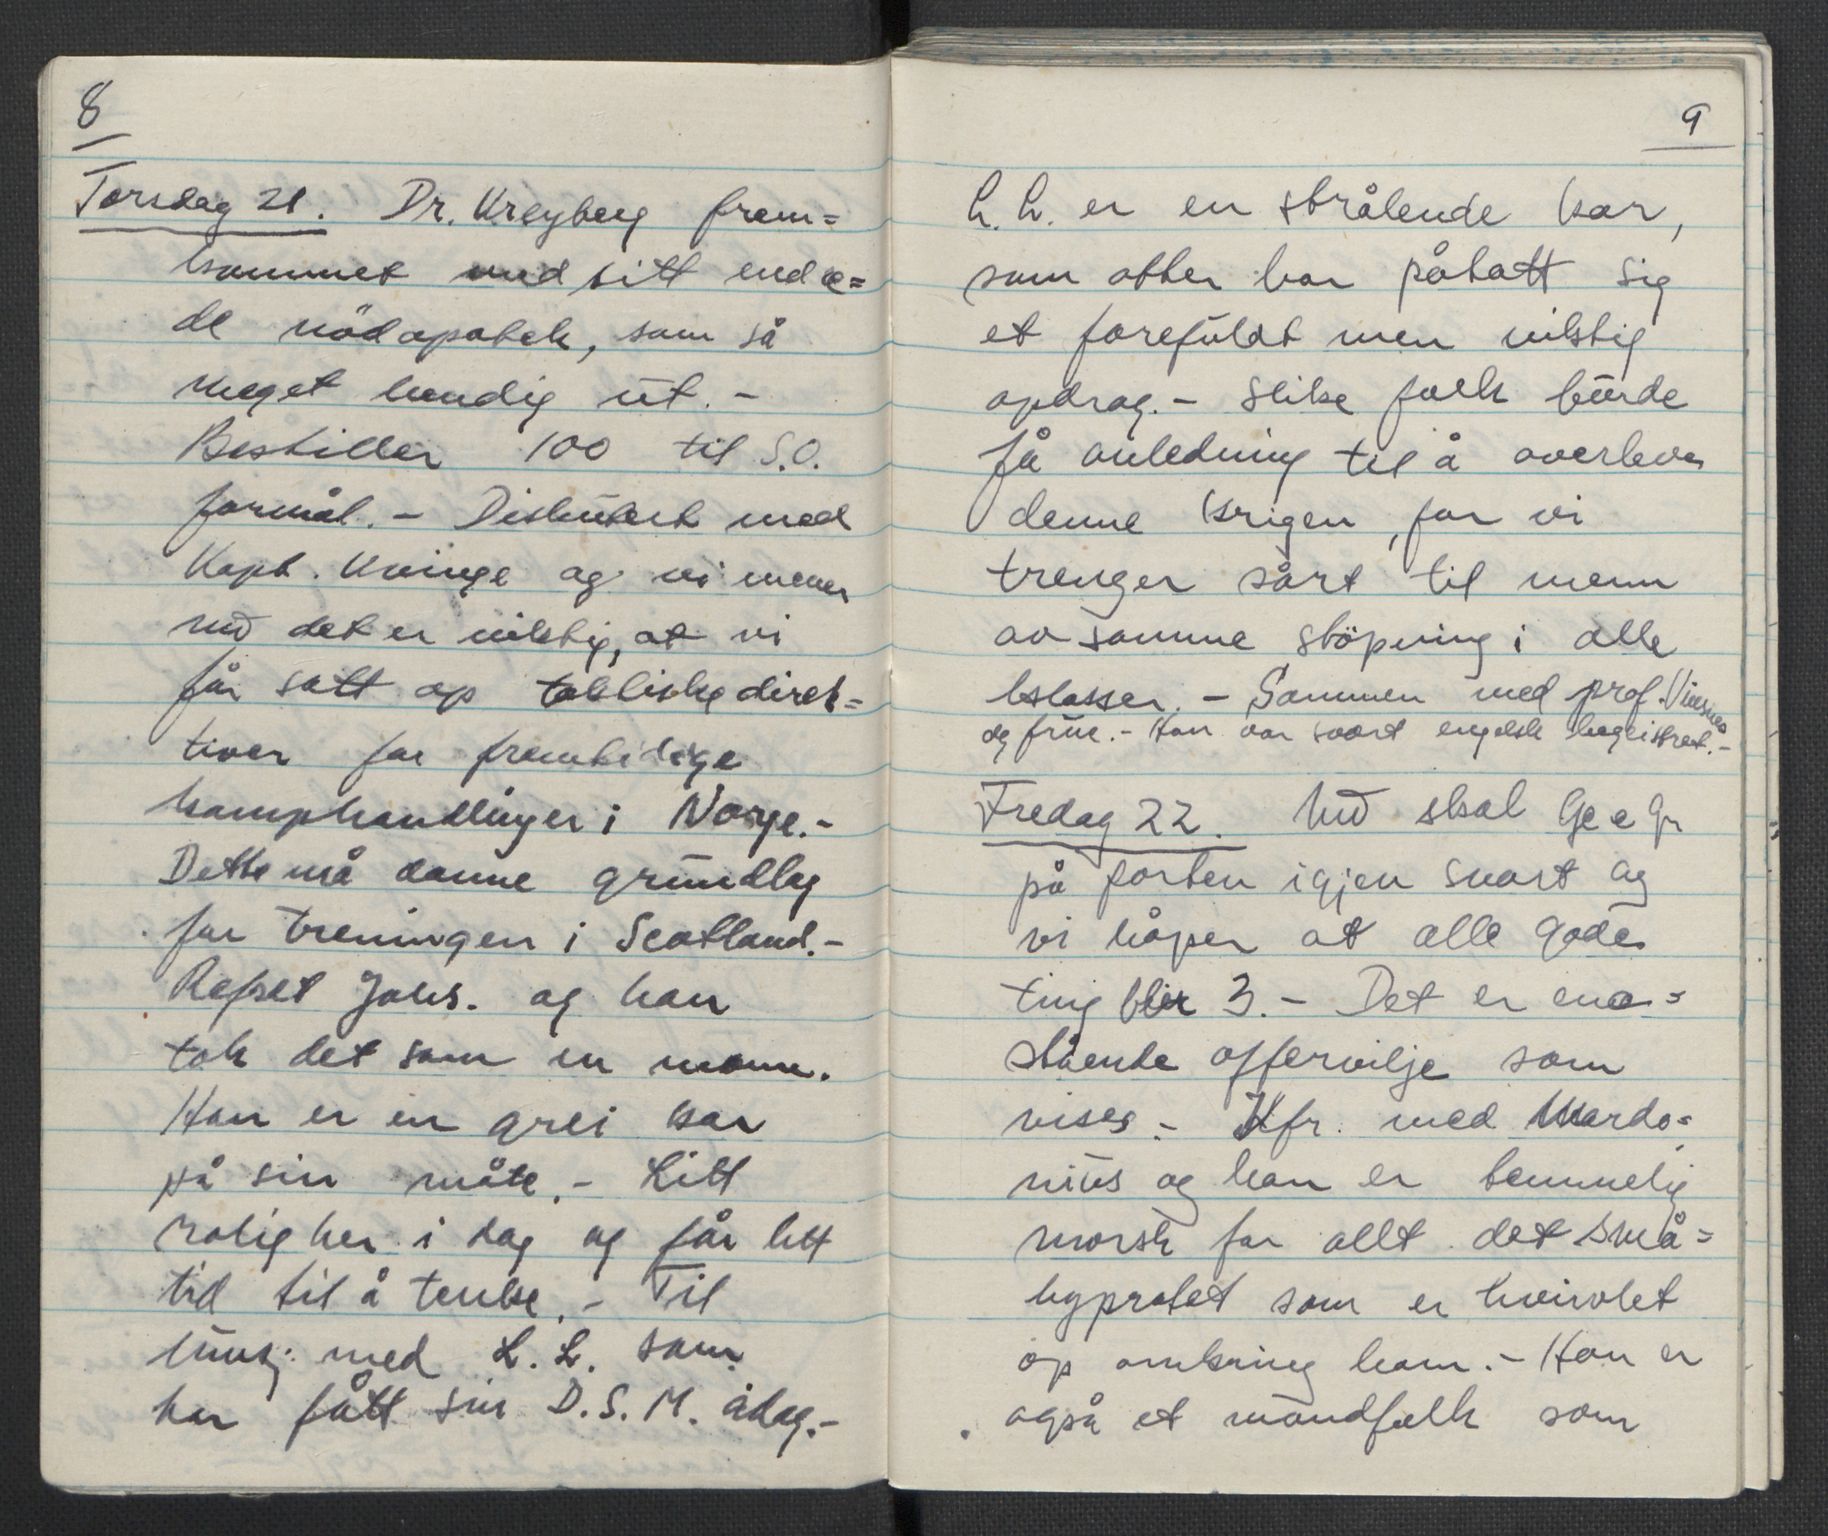 8
Torsdag 21. Dr. Kreyberg frem=
kommet med sitt ende=
de nödapotek, som så
meget hendig ut. -
Bestiller 100 til S.O.
formål. - Diskutert med
Kapt. Kvinge og vi mener
nu det er viktig, at vi
får satt op taktiske direk=
tiver for fremtidige
kamphandlinger i Norge. -
Dette må danne grundlag
for treningen i Scotland. -
Refset Johs. og han
tok det som en mann.
Han er en grei kar
på sin måte. - Litt
rolig her i dag og får litt
tid til å tenke. - Til
lunsj med L.L. som
har fått sin D.S.M. idag. -
9
L.L. er en strålende kar,
som atter har påtatt sig
et farefuldt men viktig
opdrag. - Slike folk burde
få anledning til å overleve
denne krigen, for vi
trenger sårt til menn
av samme stöpning i alle
klasser. - Sammen med prof. Vinsnes
og frue. - Han var svært engelsk begeistret. -
Fredag 22. Nu skal
på farten igjen snart og
vi håper at alle gode
ting blir 3. - Det er ena=
stående offervilje som
vises. - Kfr. med Mardo=
nius og han er temmelig
morsk for allt det små=
bypratet som er hvirvlet
op omkring ham. - Han er
også et mandfolk som